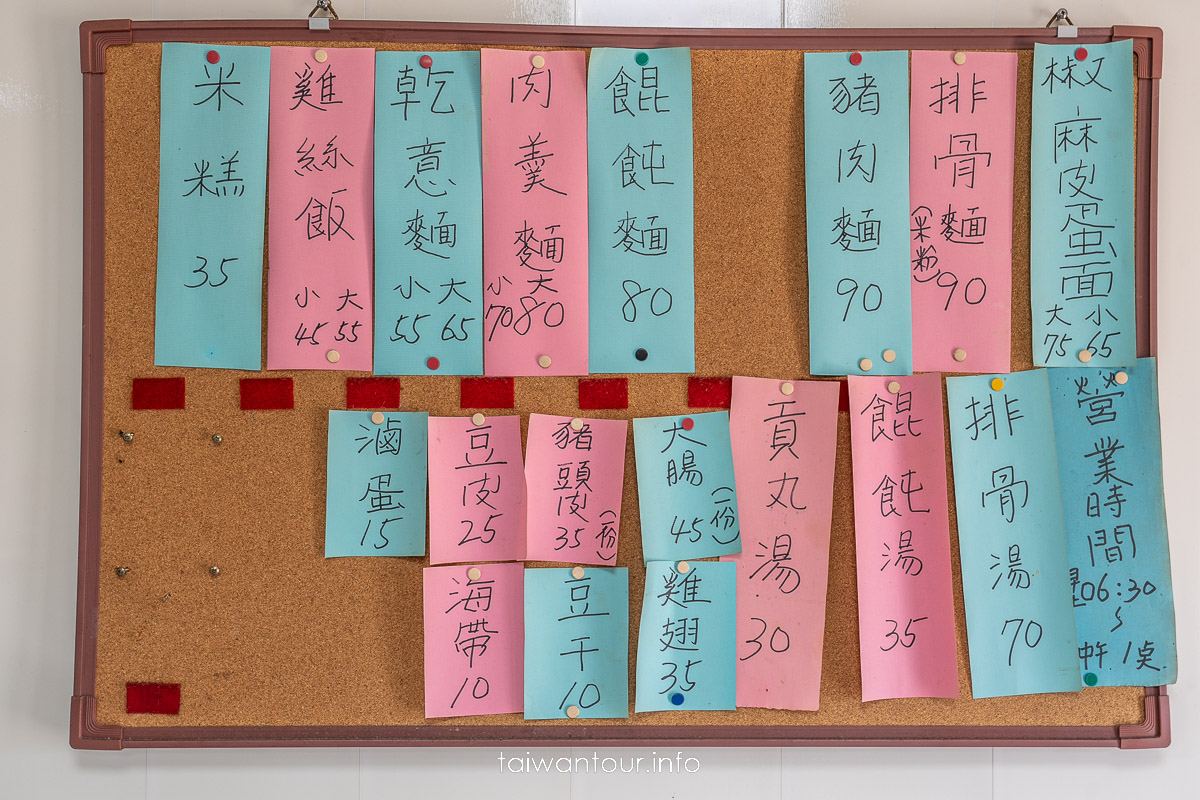 米糕
35
雞絲飯
小 大
45 55
乾意麵
小 大
55 65
肉羹麵
小 大
70 80
餛飩麵
80
豬肉麵
90
排骨麵
(米粉)
90
椒麻皮蛋面
大 小
75 65
滷蛋
15
豆皮
25
豬頭皮
(一份)
35
大腸
(一份)
45
貢丸湯
30
餛飩湯
35
排骨湯
70
營業時間
06:30
~
中午 1点
海帶
10
豆干
10
雞翅
35
taiwantour.info